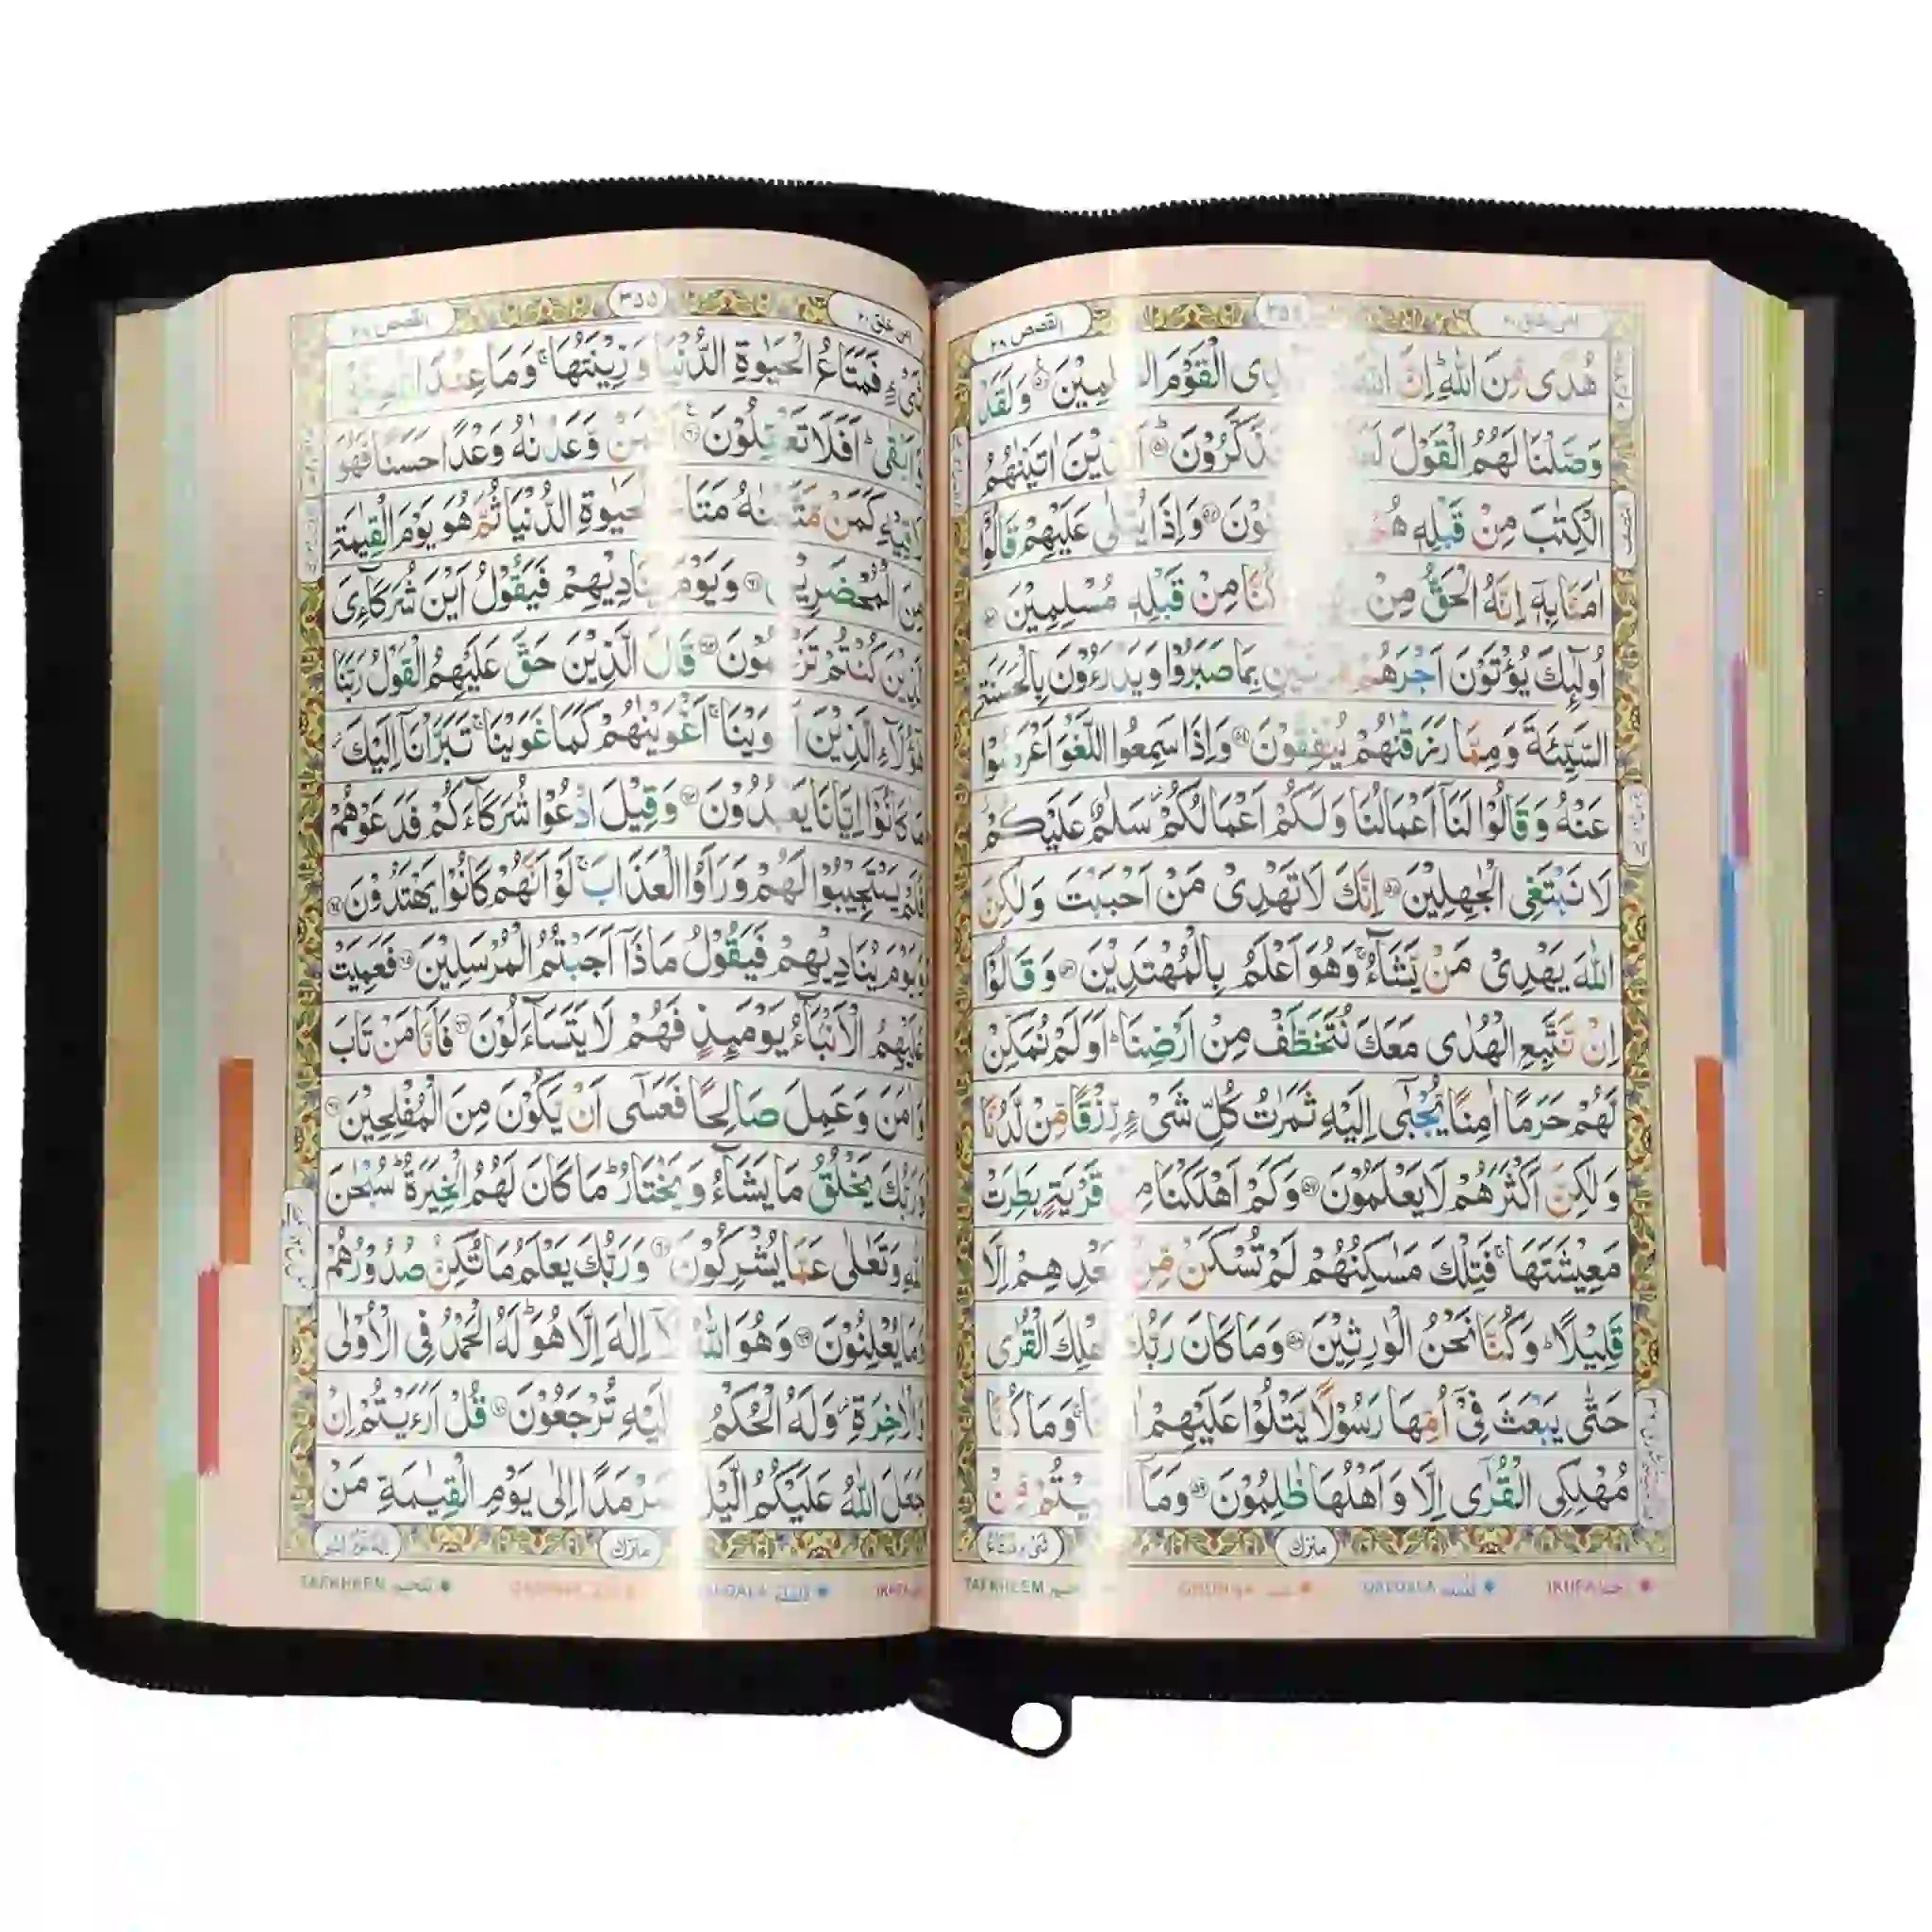 القصص ٢٨
امن خلق ٢٠
هُدًى مِّنَ اللّٰهِ ؕ اِنَّ اللّٰهَ الْقَوْمَ ۠ وَلَقَدْ
وَصَّلْنَا لَهُمُ الْقَوْلَ ؕ اَلَّذِيْنَ اٰتَيْنٰهُمُ
الْكِتٰبَ مِنْ قَبْلِهٖ وَاِذَا يُتْلٰى عَلَيْهِمْ قَالُوْۤا
اٰمَنَّا بِهٖۤ اِنَّهُ الْحَقُّ مِنْ كُنَّا مِنْ قَبْلِهٖ مُسْلِمِيْنَ ۵۳
اُولٰٓئِكَ يُؤْتَوْنَ اَجْرَهُمْ بِمَا صَبَرُوْا وَيَدْرَءُوْنَ بِالْحَسَنَةِ
السَّيِّئَةَ وَمِمَّا رَزَقْنٰهُمْ يُنْفِقُوْنَ ۵۴ وَاِذَا سَمِعُوا اللَّغْوَ اَعْرَضُوْا
عَنْهُ وَقَالُوْا لَنَاۤ اَعْمَالُنَا وَلَكُمْ اَعْمَالُكُمْ ز سَلٰمٌ عَلَيْكُمْ ز
لَا نَبْتَغِى الْجٰهِلِيْنَ ۵۵ اِنَّكَ لَا تَهْدِىْ مَنْ اَحْبَبْتَ وَلٰكِنَّ
اللّٰهَ يَهْدِىْ مَنْ يَّشَآءُ ۚ وَهُوَ اَعْلَمُ بِالْمُهْتَدِيْنَ ۵۶ وَقَالُوْۤا
اِنْ نَّتَّبِعِ الْهُدٰى مَعَكَ نُتَخَطَّفْ مِنْ اَرْضِنَا ؕ اَوَلَمْ نُمَكِّنْ
لَّهُمْ حَرَمًا اٰمِنًا يُّجْبٰۤى اِلَيْهِ ثَمَرٰتُ كُلِّ شَىْءٍ رِّزْقًا مِّنْ لَّدُنَّا
وَلٰكِنَّ اَكْثَرَهُمْ لَا يَعْلَمُوْنَ ۵۷ وَكَمْ اَهْلَكْنَا مِنْ قَرْيَةٍۭ بَطِرَتْ
مَعِيْشَتَهَا ۚ فَتِلْكَ مَسٰكِنُهُمْ لَمْ تُسْكَنْ مِّنْۢ بَعْدِهِمْ اِلَّا
قَلِيْلًا ؕ وَكُنَّا نَحْنُ الْوٰرِثِيْنَ ۵۸ وَمَا كَانَ رَبُّكَ مُهْلِكَ الْقُرٰى
حَتّٰى يَبْعَثَ فِىْۤ اُمِّهَا رَسُوْلًا يَّتْلُوْا عَلَيْهِمْ وَمَا كُنَّا
مُهْلِكِى الْقُرٰٓى اِلَّا وَاَهْلُهَا ظٰلِمُوْنَ ۵۹ وَمَاۤ اُوْتِيْتُمْ مِّنْ
منزل
TAFKHEEM QALQALA IKHFA
القصص ٢٨
٣٥٥
امن خلق ٢٠
شَىْءٍ فَمَتَاعُ الْحَيٰوةِ الدُّنْيَا وَزِيْنَتُهَا ۚ وَمَا عِنْدَ
وَّاَبْقٰى ؕ اَفَلَا تَعْقِلُوْنَ ۶۰ وَّعَدْنٰهُ وَعْدًا حَسَنًا فَهُوَ
لَاقِيْهِ كَمَنْ مَّتَّعْنٰهُ مَتَاعَ الْحَيٰوةِ الدُّنْيَا ثُمَّ هُوَ يَوْمَ الْقِيٰمَةِ
مِنَ الْمُحْضَرِيْنَ ۶۱ وَيَوْمَ يُنَادِيْهِمْ فَيَقُوْلُ اَيْنَ شُرَكَآءِىَ
الَّذِيْنَ كُنْتُمْ تَزْعُمُوْنَ ۶۲ قَالَ الَّذِيْنَ حَقَّ عَلَيْهِمُ الْقَوْلُ رَبَّنَا
هٰٓؤُلَآءِ الَّذِيْنَ اَغْوَيْنَا ۚ اَغْوَيْنٰهُمْ كَمَا غَوَيْنَا ۚ تَبَرَّاْنَاۤ اِلَيْكَ ز
مَا كَانُوْۤا اِيَّانَا يَعْبُدُوْنَ ۶۳ وَقِيْلَ ادْعُوْا شُرَكَآءَكُمْ فَدَعَوْهُمْ
فَلَمْ يَسْتَجِيْبُوْا لَهُمْ وَرَاَوُا الْعَذَابَ ۚ لَوْ اَنَّهُمْ كَانُوْا يَهْتَدُوْنَ ۶۴
وَيَوْمَ يُنَادِيْهِمْ فَيَقُوْلُ مَاذَاۤ اَجَبْتُمُ الْمُرْسَلِيْنَ ۶۵ فَعَمِيَتْ
عَلَيْهِمُ الْاَنْۢبَآءُ يَوْمَئِذٍ فَهُمْ لَا يَتَسَآءَلُوْنَ ۶۶ فَاَمَّا مَنْ تَابَ
وَاٰمَنَ وَعَمِلَ صَالِحًا فَعَسٰۤى اَنْ يَّكُوْنَ مِنَ الْمُفْلِحِيْنَ ۶۷
وَرَبُّكَ يَخْلُقُ مَا يَشَآءُ وَيَخْتَارُ ؕ مَا كَانَ لَهُمُ الْخِيَرَةُ ؕ سُبْحٰنَ
اللّٰهِ وَتَعٰلٰى عَمَّا يُشْرِكُوْنَ ۶۸ وَرَبُّكَ يَعْلَمُ مَا تُكِنُّ صُدُوْرُهُمْ
وَمَا يُعْلِنُوْنَ ۶۹ وَهُوَ اللّٰهُ لَاۤ اِلٰهَ اِلَّا هُوَ ؕ لَهُ الْحَمْدُ فِى الْاُوْلٰى
وَالْاٰخِرَةِ ز وَلَهُ الْحُكْمُ وَاِلَيْهِ تُرْجَعُوْنَ ۷۰ قُلْ اَرَءَيْتُمْ اِنْ
جَعَلَ اللّٰهُ عَلَيْكُمُ الَّيْلَ سَرْمَدًا اِلٰى يَوْمِ الْقِيٰمَةِ مَنْ
منزل
TAFKHEEM QALQALA IKHFA